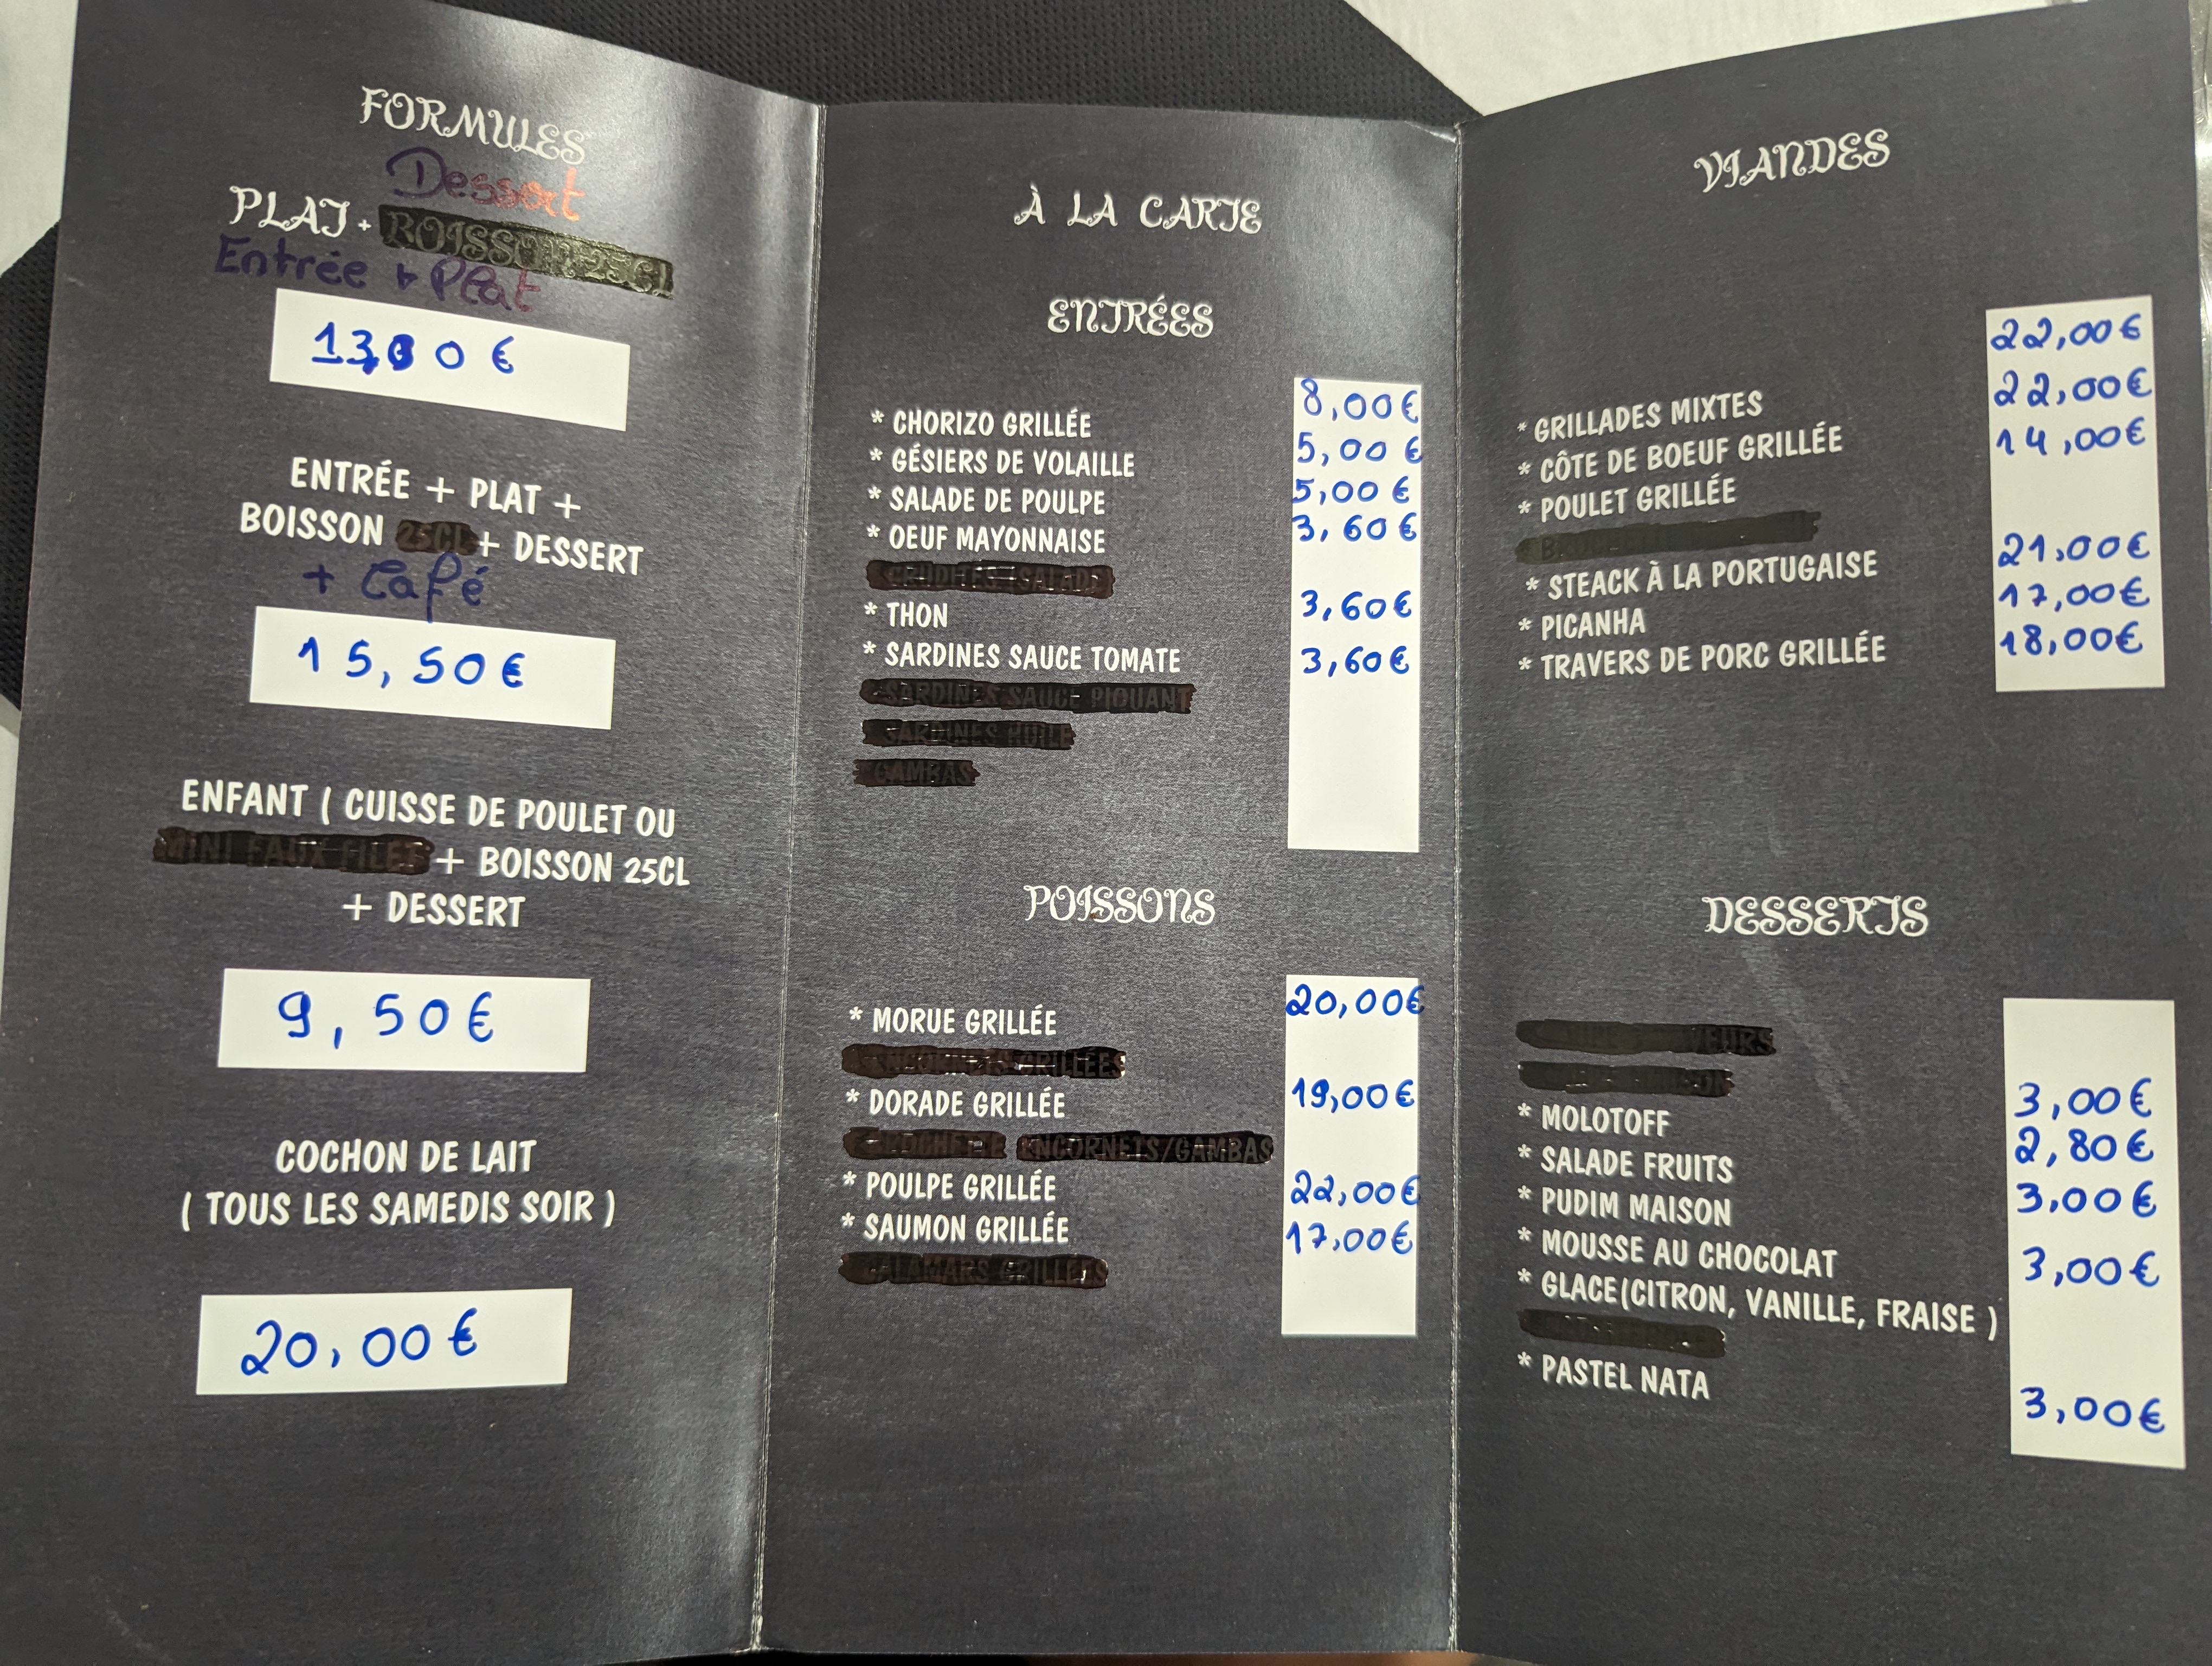 FORMULES
Dessert
PLAT + BOISSON 25CL
Entrée + Plat
13,00 €
ENTRÉE + PLAT +
BOISSON 25CL + DESSERT
+ Café
15,50€
ENFANT ( CUISSE DE POULET OU
MINI FAUX FILET + BOISSON 25CL
+ DESSERT
9,50€
COCHON DE LAIT
( TOUS LES SAMEDIS SOIR )
20,00€
À LA CARTE
ENTRÉES
* CHORIZO GRILLÉE 8,00€
* GÉSIERS DE VOLAILLE 5,00€
* SALADE DE POULPE 5,00€
* OEUF MAYONNAISE 3,60€
* THON 3,60€
* SARDINES SAUCE TOMATE 3,60€
SARDINES SAUCE PIQUANT
SARDINES HUILE
GAMBAS
POISSONS
* MORUE GRILLÉE 20,00€
GRILLÉES
* DORADE GRILLÉE 19,00€
ENCORNETS/GAMBAS
* POULPE GRILLÉE 22,00€
* SAUMON GRILLÉE 17,00€
CALAMARS GRILLÉES
VIANDES
* GRILLADES MIXTES 22,00€
* CÔTE DE BOEUF GRILLÉE 22,00€
* POULET GRILLÉE 14,00€
* STEACK À LA PORTUGAISE 21,00€
* PICANHA 17,00€
* TRAVERS DE PORC GRILLÉE 18,00€
DESSERTS
* MOLOTOFF 3,00€
* SALADE FRUITS 2,80€
* PUDIM MAISON 3,00€
* MOUSSE AU CHOCOLAT 3,00€
* GLACE(CITRON, VANILLE, FRAISE )
* PASTEL NATA 3,00€